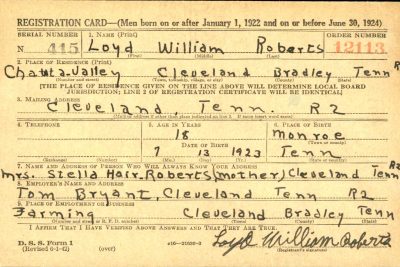 REGISTRATION CARD—(Men born on or after January 1, 1922 and on or before June 30, 1924)
SERIAL NUMBER 1. NAME (Print) ORDER NUMBER
N 415 Loyd William Roberts 12113
(First) (Middle) (Last)
2. PLACE OF RESIDENCE (Print)
Chata Valley Cleveland Bradley Tenn R2
(Number and street) (Town, township, village, or city) (County) (State)
[THE PLACE OF RESIDENCE GIVEN ON THE LINE ABOVE WILL DETERMINE LOCAL BOARD
JURISDICTION; LINE 2 OF REGISTRATION CERTIFICATE WILL BE IDENTICAL]
3. MAILING ADDRESS
Cleveland Tenn. R2
[Mailing address if other than place indicated on line 2. If same insert word same]
4. TELEPHONE 5. AGE IN YEARS 6. PLACE OF BIRTH
18 Monroe
DATE OF BIRTH (Town or county)
7 13 1923 Tenn
(Exchange) (Number) (Mo.) (Day) (Yr.) (State or country)
7. NAME AND ADDRESS OF PERSON WHO WILL ALWAYS KNOW YOUR ADDRESS
Mrs. Stella Hair Roberts (mother) Cleveland Tenn R2
8. EMPLOYER'S NAME AND ADDRESS
Tom Bryant, Cleveland Tenn R2
9. PLACE OF EMPLOYMENT OR BUSINESS
Farming Cleveland Bradley Tenn
(Number and street or R. F. D. number) (Town) (County) (State)
I AFFIRM THAT I HAVE VERIFIED ABOVE ANSWERS AND THAT THEY ARE TRUE.
D. S. S. Form 1
(Revised 6-9-42) (over) Loyd William Roberts
(Registrant's signature)